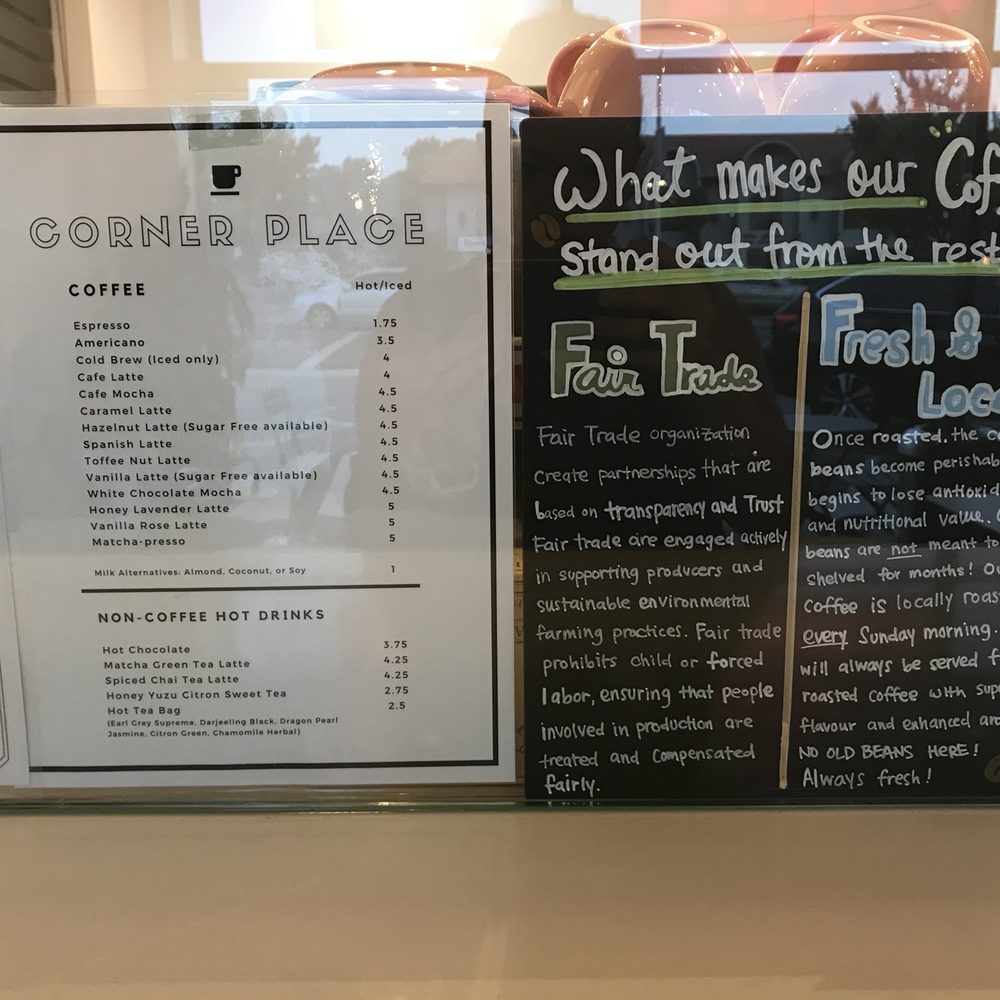 CORNER PLACE
COFFEE Hot/Iced
Espresso 1.75
Americano 3.5
Cold Brew (Iced only) 4
Cafe Latte 4
Cafe Mocha 4.5
Caramel Latte 4.5
Hazelnut Latte (Sugar Free available) 4.5
Spanish Latte 4.5
Toffee Nut Latte 4.5
Vanilla Latte (Sugar Free available) 4.5
White Chocolate Mocha 4.5
Honey Lavender Latte 5
Vanilla Rose Latte 5
Matcha-presso 5
Milk Alternatives: Almond, Coconut, or Soy 1
NON-COFFEE HOT DRINKS
Hot Chocolate 3.75
Matcha Green Tea Latte 4.25
Spiced Chai Tea Latte 4.25
Honey Yuzu Citron Sweet Tea 2.75
Hot Tea Bag 2.5
(Earl Grey Supreme, Darjeeling Black, Dragon Pearl
Jasmine, Citron Green, Chamomile Herbal)
What makes our Cof
stand out from the rest
Fair Trade
Fair Trade organization
create partnerships that are
based on transparency and Trust
Fair trade are engaged actively
in supporting producers and
sustainable environmental
farming practices. Fair trade
prohibits child or forced
labor, ensuring that people
involved in production are
treated and compensated
fairly.
Fresh &
Loc
Once roasted, the
beans become perishab
begins to lose antioxid
and nutritional value.
beans are not meant to
shelved for months! Ou
coffee is locally roas
every Sunday morning.
will always be served f
roasted coffee with sup
flavour and enhanced
NO OLD BEANS HERE!
Always fresh!